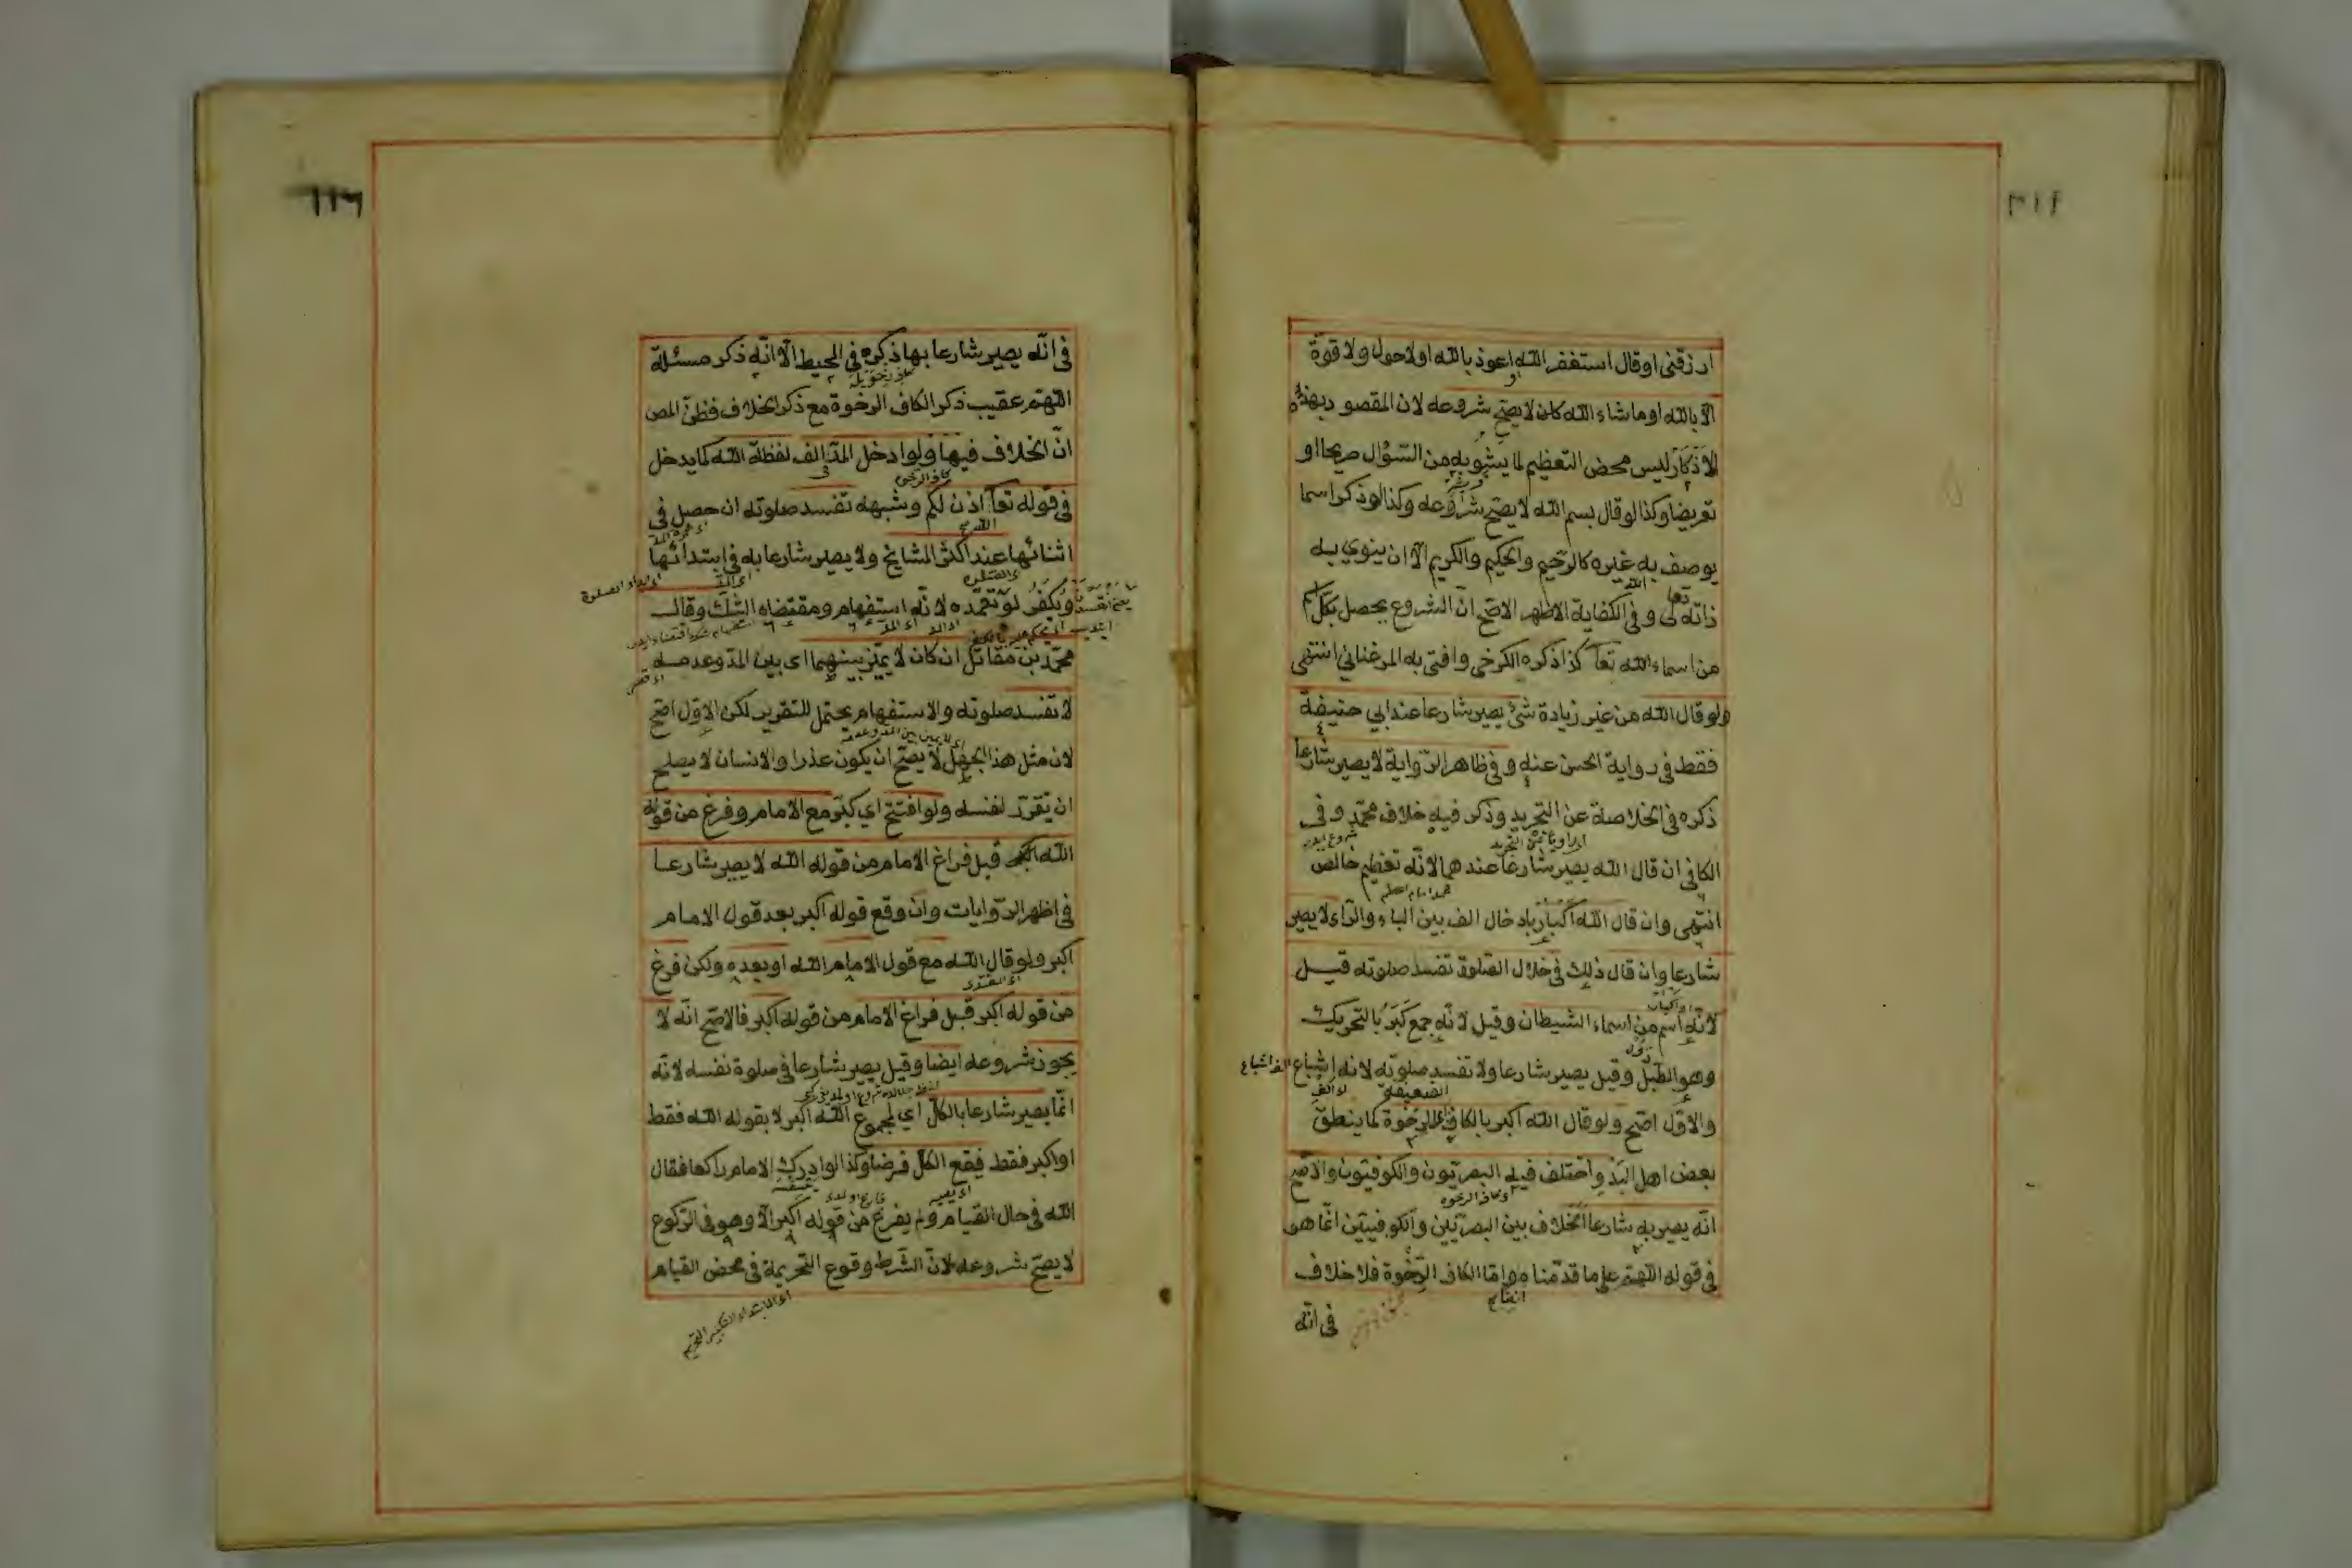 ارزقنى او قال استغفر الله او اعوذ بالله او لا حول ولا قوة
الا بالله او ما شاء الله كان لا يصح شروعه لان المقصود بهذه
الاذكار ليس محض التعظيم لما يشوبه من السؤال صريحا او
تعريضا وكذا لو قال بسم الله لا يصح شروعه وكذا لو ذكر اسما
يوصف به غيره كالرحيم والحكيم والكريم الا ان ينوي به
ذاته تعالى وفى الكفاية الاظهر الاصح ان الشروع يحصل بكل اسم
من اسماء الله تعا كذا ذكره الكرخى وافتى به المرغنانى انتهى
ولو قال الله من غير زيادة شئ يصير شارعا عند ابي حنيفة
فقط فى رواية الحسن عنه وفى ظاهر الرواية لا يصير شارعا
ذكره فى الخلاصة عن التجريد وذكر فيه خلاف محمد وفى
الكافى ان قال الله يصير شارعا عندهما لانه تعظيم خالص
انتهى وان قال الله اكبار بادخال الف بين الباء والراء لا يصير
شارعا وان قال ذلك فى خلال الصلوة تفسد صلوته قيل
لانه اسم من اسماء الشيطان وقيل لانه جمع كبر بالتحريك
وهو الطبل وقيل يصير شارعا ولا تفسد صلوته لانه اشباع
والاول اصح ولو قال الله اكبر بالكاف الرخوة كما ينطق
بعض اهل البدو اختلف فيه البصريون والكوفيون والاصح
انه يصير به شارعا الخلاف بين البصريين والكوفيين انما هو
فى قوله اللهم على ما قدمناه واما الكاف الرخوة فلا خلاف
فى انه
١١٦
فى انه يصير شارعا بها ذكره فى المحيط الا انه ذكر مسئلة
اللهم عقيب ذكر الكاف الرخوة مع ذكر الخلاف فظن المص
ان الخلاف فيها ولو ادخل المد الف لفظة الله كما يدخل
فى قوله تعا اذن لكم وشبهه تفسد صلوته ان حصل فى
اثنائها عند اكثر المشايخ ولا يصير شارعا به فى ابتدائها
ويكفر لو تعمده لانه استفهام ومقتضاه الشك وقال
محمد بن مقاتل ان كان لا يميز بينهما اى بين المد وعدمه
لا تفسد صلوته والاستفهام يحتمل للتقرير لكن الاول اصح
لان مثل هذا الجهل لا يصح ان يكون عذرا والانسان لا يصلح
ان يقرر لنفسه ولو افتتح اي كبر مع الامام وفرغ من قوله
الله اكبر قبل فراغ الامام من قوله الله لا يصير شارعا
فى اظهر الروايات وان وقع قوله اكبر بعد قول الامام
اكبر ولو قال الله مع قول الامام الله او بعده ولكن فرغ
من قوله اكبر قبل فراغ الامام من قوله اكبر فالاصح انه لا
يجوز شروعه ايضا وقيل يصير شارعا فى صلوة نفسه لانه
انما يصير شارعا بالكل اي لمجموع الله اكبر لا بقوله الله فقط
او اكبر فقط فيقع الكل فرضا وكذا لو ادرك الامام راكعا فقال
الله فى حال القيام ولم يفرغ من قوله اكبر الا وهو فى الركوع
لا يصح شروعه لان الشرط وقوع التحريمة فى محض القيام